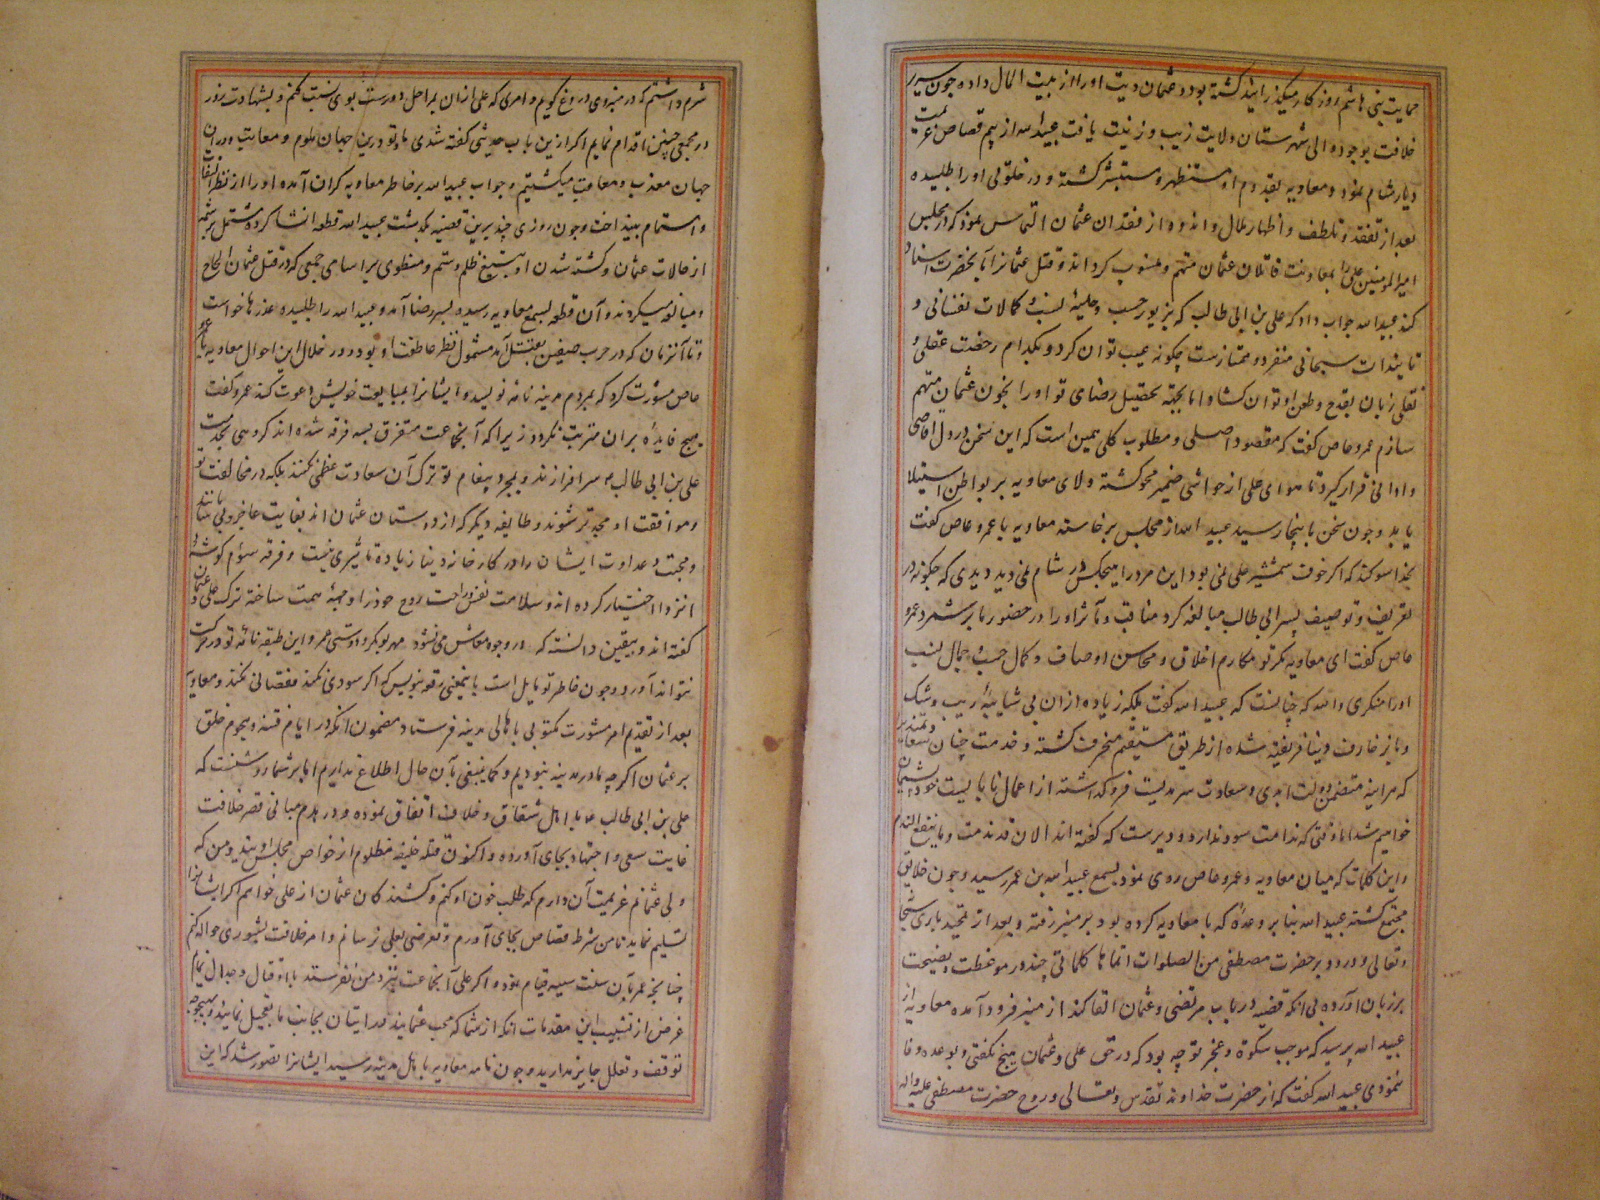 حمایت بنی هاشم روز کار میگذرانید کشته بود و عثمان دیت او را از بیت المال داده چون سریر
خلافت بوجود والی شهرستان ولایت زیب و زینت یافت عبید الله از بیم قصاص عزیمت
دیار شام نمود و معاویه بقدوم او مستظهر و مستبشر کشته و در خلوتی او را طلبیده
بعد از تفقد و تلطف و اظهار ملال و اندوه از فقدان عثمان التماس نمود که در مجلس
امیر المومنین علی را بمعاونت قاتلان عثمان متهم و منسوب کرداند و قتل عثمانرا بآنحضرت اسناد
کند عبید الله جواب داد که علی بن ابی طالب که بزیور حسب و حلیهٔ نسب و کمالات نفسانی و
تاییدات سبحانی منفرد و ممتازست چکونه عیب توان کرد و بکدام رخصت عقلی و
نقلی زبان بقدح و طعن او توان کشاد اما بجهة تحصیل رضای تو او را بخون عثمان متهم
سازم عمرو عاص کفت که مقصود اصلی و مطلوب کلی همین است که این سخن در دل اقاصی
و ادانی قرار کیرد تا هوای علی از حواشی ضمیر محو کشته ولای معاویه بر بواطن استیلا
یابد و چون سخن باینجا رسید عبید الله از مجلس برخاسته معاویه با عمرو عاص کفت
بخدا سوکند که اگر خوف شمشیر علی نمی بود این مرد را هیچکس در شام نمی دید دیدی که چکونه در
تعریف و توصیف پسر ابی طالب مبالغه کرد مناقب و مآثر او را در حضور ما بر شمرد عمرو
عاص کفت ای معاویه مکر تو مکارم اخلاق و محاسن اوصاف و کمال حسب و جمال نسب
او را منکری والله که چنانست که عبید الله کفت بلکه زیاده از ان بی شایبهٔ ریب و شک
و ما بزخارف دنیا فریفته شده از طریق مستقیم منحرف کشته و خدمت چنان سعادتمندی
که هراینه متضمن دولت ابدی و سعادت سرمدیست فرو کذاشته از اعمال نابایست خود پشیمان
خواهیم شد اما وقتی که ندامت سود ندارد و دیرست که کفته اند الان قد ندمت و ما ینفع الندم
و این کلمات که میان معاویه و عمرو عاص روی نمود بسمع عبید الله بن عمر رسید و چون خلایق
مجتمع کشته عبید الله بنا بر وعدهٔ که با معاویه کرده بود بر منبر رفته و بعد از تمجید باری سبحانه
و تعالی و درود بر حضرت مصطفی من الصلوات اتمها کلماتی چند در موعظت و نصیحت
بر زبان آورده بی انکه قضیه در باب مرتضی و عثمان القا کند از منبر فرود آمده معاویه از
عبید الله پرسید که موجب سکوت و عجز تو چه بود که در حق علی و عثمان هیچ نکفتی و بوعده وفا
ننمودی عبید الله کفت که از حضرت خداوند تقدس و تعالی و روح حضرت مصطفی علیه و اله
شرم داشتم که در منبر وی دروغ کویم و امری که علی از ان بمراحل دورست بوی نسبت کنم و بشهادت زور
در مجمعی چنین اقدام نمایم اکر ازین باب حدیثی کفته شدی ما و تو درین جهان ملوم و معاتب و در ان
جهان معذب و معاقب میکشتیم و جواب عبید الله بر خاطر معاویه کران آمده او را از نظر التفات
و اهتمام بینداخت و چون روزی چند برین قضیه بکذشت عبید الله قطعه انشا کرد مشتمل بر شمهٔ
از حالات عثمان و کشته شدن او بتیغ ظلم و ستم و منطوی بر اسامی جمعی که در قتل عثمان الحاح
و مبالغه میکردند و آن قطعه بسمع معاویه رسیده بسر رضا آمد و عبید الله را طلبیده عذرها خواست
و تا آنزمان که در حرب صفین بقتل آمد مشمول نظر عاطفت او بود و در خلال این احوال معاویه با عمرو
عاص مشورت کرد که بمردم مدینه نامه نویسد و ایشانرا بمبایعت خویش دعوت کند عمرو کفت
هیچ فایدهٔ بران مترتب نکردد زیرا که آنجماعت متفرق بسه فرقه شده اند کروهی بمحبت
علی بن ابی طالب سرافرازند و بمجرد پیغام تو ترک آن سعادت عظمی نکنند بلکه در مخالفت تو
و موافقت او مجدتر شوند و طایفه دیکر که از دوستان عثمان اند بغایت عاجز و بی مانند
و محبت و عداوت ایشان را در کار خانه دنیا زیاده تاثیری نیست و فرقه سئوم کوشه
انزوا اختیار کرده اند و سلامت نفس و راحت روح خود را وجههٔ همت ساخته ترک علی و عثمان
کفته اند و بیقین دانسته که در وجوه معاش نمی نشود مهر بوبکر و دوستی عمر و این طبقه نامهٔ تو در حرکت
نتواند آورد و چون خاطر تو مایل است باینمعنی رقعه بنویس که اکر سودی نکند نقصانی نکند و معاویه
بعد از تقدیم امر مشورت مکتوبی باهالی مدینه فرستاد مضمون آنکه در ایام فتنه و هجوم خلق
بر عثمان اکرچه ما در مدینه نبودیم و کما ینبغی بآن حال اطلاع نداریم اما بر شما روشنست که
علی بن ابی طالب با اهل شقاق و خلاف اتفاق نموده و در هدم مبانی قصر خلافت
غایت سعی و اجتهاد بجای آورده و اکنون قتله خلیفه مظلوم از خواص مجلس اویند و من که
ولی عثمانم عزیمت آن دارم که طلب خون او کنم و کشندکان عثمان از علی خواهم اکر ایشانرا
تسلیم نماید تا من شرط قصاص بجای آورم و تعرضی بعلی نرسانم و امر خلافت بشوری حواله کنم
چنانچه عمر بآن سنت سنیه قیام نمود و اکر علی آنجماعت را نزد من نفرستد با او قتال و جدال نمایم
غرض از تشبیب این مقدمات انکه از شما که محب عثمانید مدد ایتان بجانب ما تعجیل نمایند و بهیچوجه
توقف و تعلل جایز ندارید و چون نامه معاویه باهل مدینه رسید ایشانرا تصور شد که این